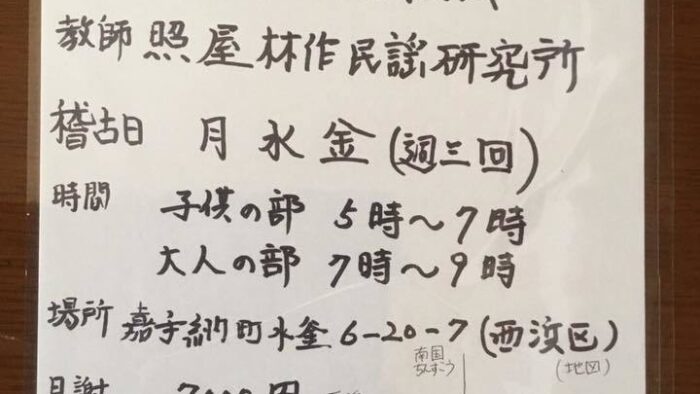 教師 照屋林作民謡研究所
稽古日 月水金(週三回)
時間 子供の部 5時〜7時
大人の部 7時〜9時
場所 嘉手納町水釜6-20-7(西浜区)
南国
ちんすこう
(地図)
月謝 円